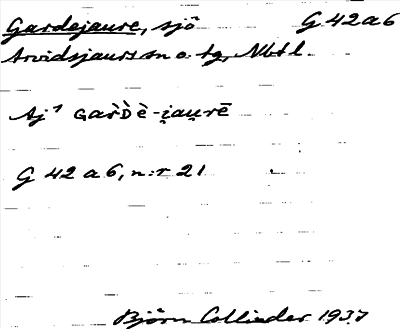 Gardejaure, sjö G 42 a 6
Arvidsjaurs sn o. tg, Nbtl.
Aj¹ Gaṙ̀D̀è-i̯au̯rē
G 42 a 6, n:r 21
Björn Collinder 1937